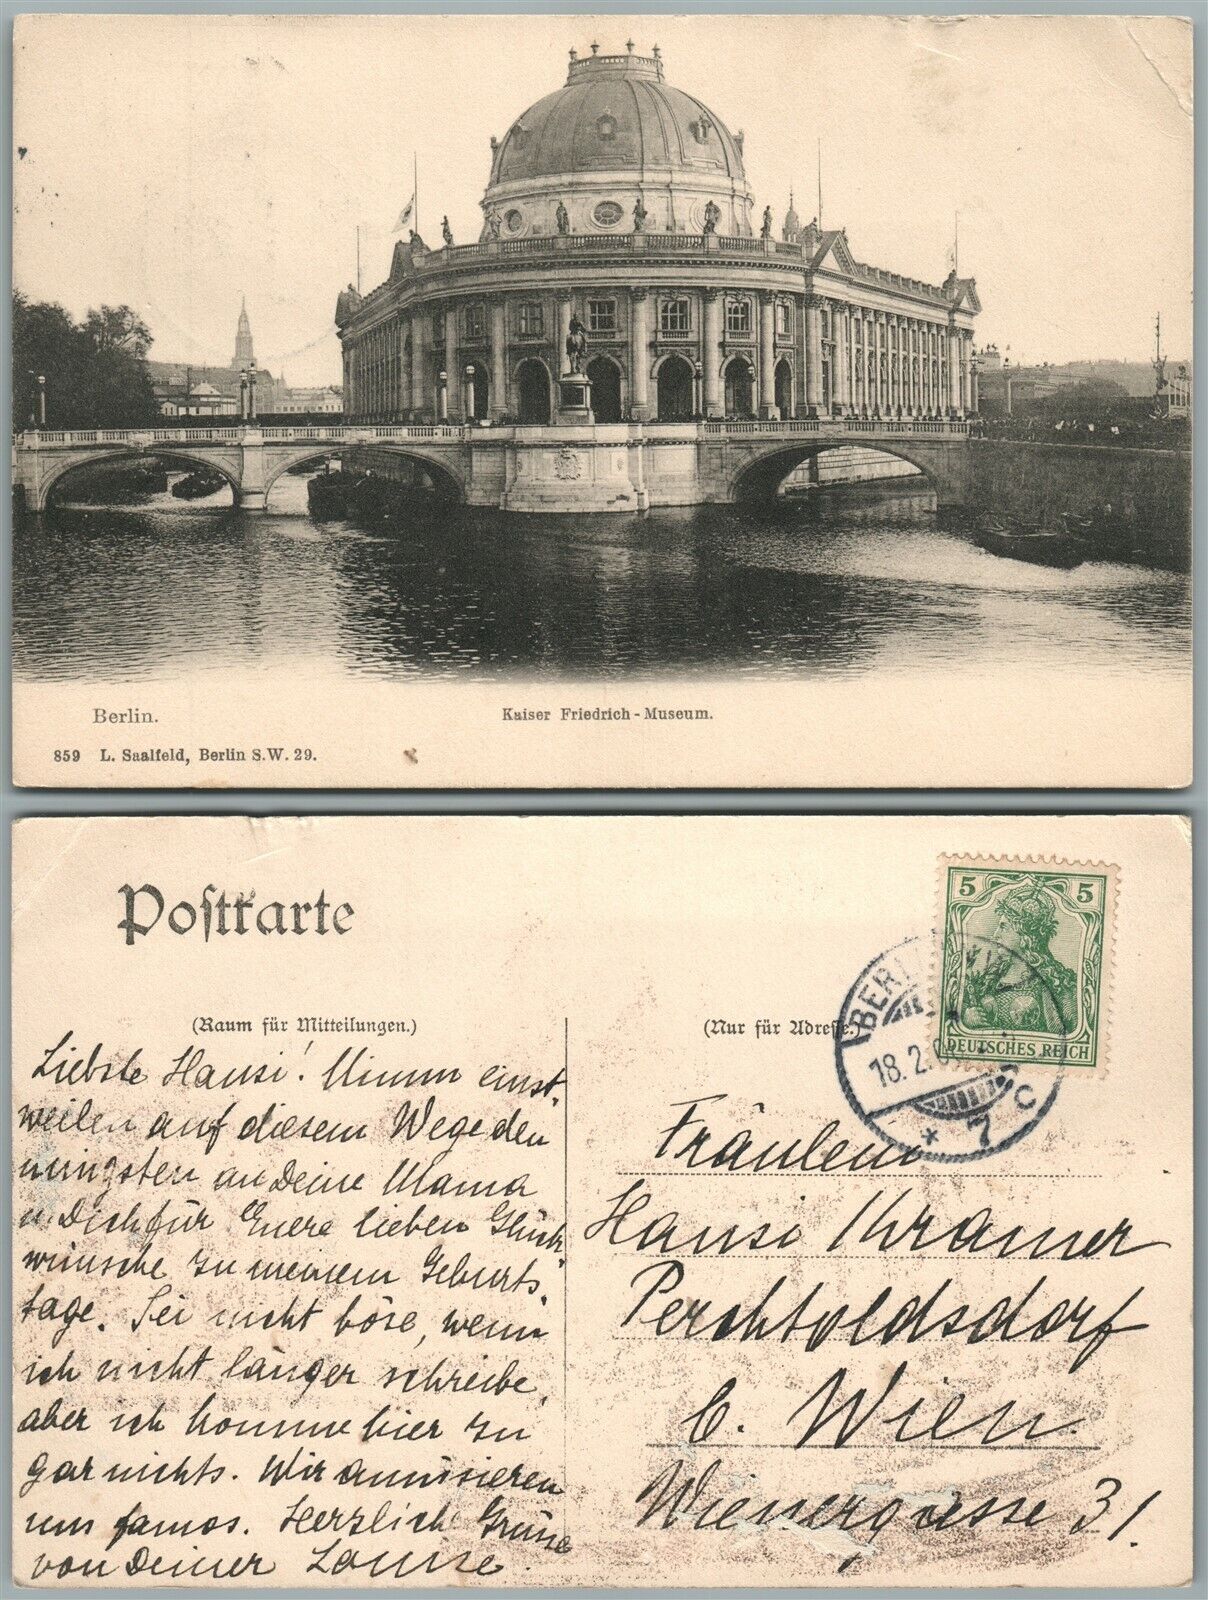 Berlin.
Kaiser Friedrich-Museum.
859 L. Saalfeld, Berlin S.W. 29.
Postkarte
(Raum für Mitteilungen.)
(Nur für Adresse.)
5 5
DEUTSCHES REICH
BERLIN
18.2.0
* 7 c
Liebste Hansi! Nimm einst-
weilen auf diesem Wege den
innigsten an Deine Mama
u. Dich für Euere lieben Glück-
wünsche zu meinem Geburts-
tage. Sei nicht böse, wenn
ich nicht länger schreibe,
aber ich komme hier zu
gar nichts. Wir amüsieren
uns famos. Herzlich Grüsse
von Deiner Louise.
Fräulein
Hansi Kramer
Perchtoldsdorf
b. Wien
Wienergasse 31.